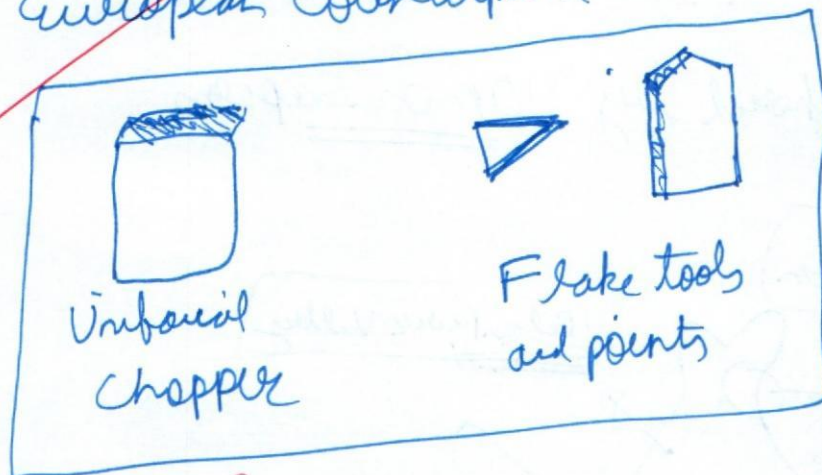 European
Unifacial
Chopper
Flake tools
and points